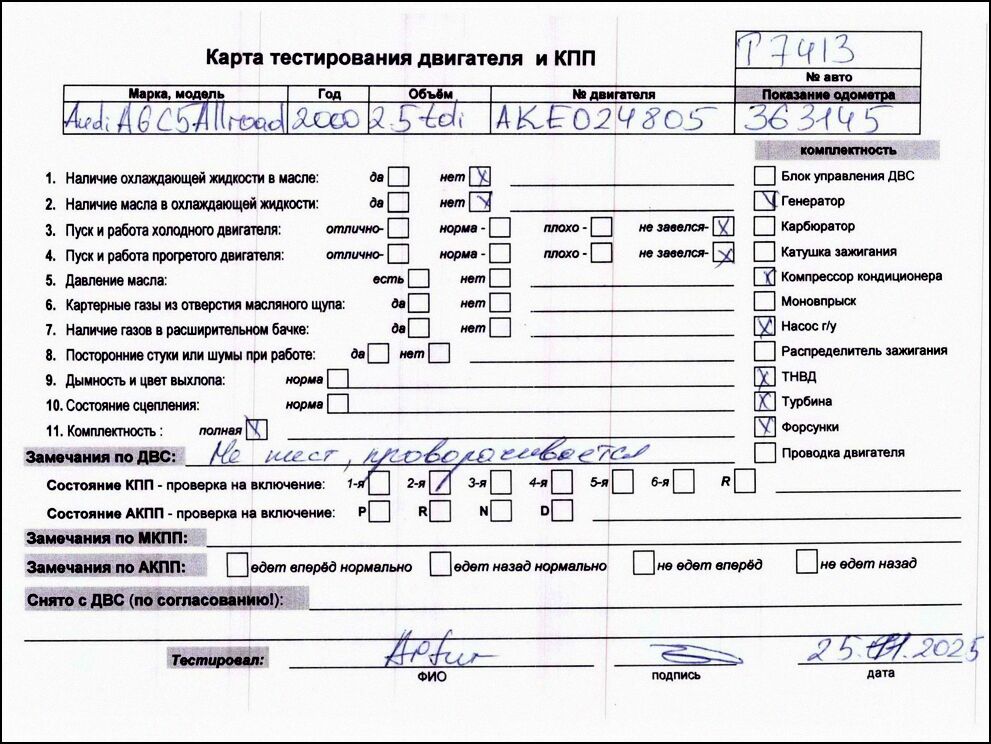 T 7413
Карта тестирования двигателя и КПП
№ авто
Марка, модель Год Объём № двигателя Показание одометра
Audi A6C5 Allroad 2000 2.5 tdi AKE024805 363145
комплектность
1. Наличие охлаждающей жидкости в масле: да нет X
Блок управления ДВС
2. Наличие масла в охлаждающей жидкости: да нет X
Генератор
3. Пуск и работа холодного двигателя: отлично- норма - плохо - не завелся- X
Карбюратор
4. Пуск и работа прогретого двигателя: отлично- норма - плохо - не завелся- X
Катушка зажигания
5. Давление масла: есть нет
X Компрессор кондиционера
6. Картерные газы из отверстия масляного щупа: да нет
Моновпрыск
7. Наличие газов в расширительном бачке: да нет
X Насос г/у
8. Посторонние стуки или шумы при работе: да нет
Распределитель зажигания
9. Дымность и цвет выхлопа: норма
X ТНВД
10. Состояние сцепления: норма
X Турбина
11. Комплектность : полная X
X Форсунки
Замечания по ДВС: Не тест, проворачивается
Проводка двигателя
Состояние КПП - проверка на включение: 1-я 2-я 3-я 4-я 5-я 6-я R
Состояние АКПП - проверка на включение: P R N D
Замечания по МКПП:
Замечания по АКПП: едет вперёд нормально едет назад нормально не едет вперёд не едет назад
Снято с ДВС (по согласованию!):
Тестировал: Artur 25.11.2025
ФИО подпись дата